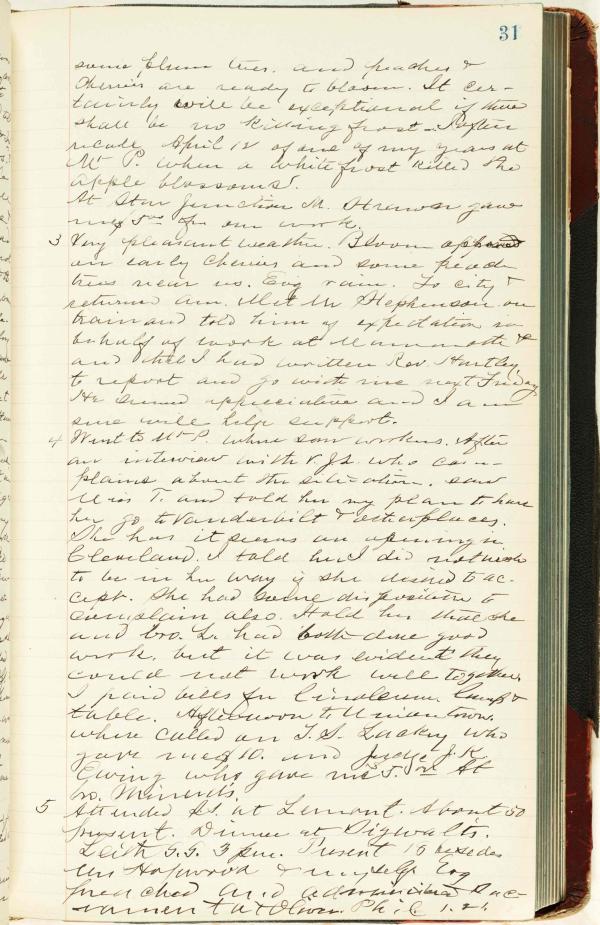 31
some plum trees. and peaches &
cherries are ready to bloom. It cer-
tainly will be exceptional if there
shall be no killing frost. I often
recall April 12 of one of my years at
Mt P. when a white frost killed the
apple blossoms.
At Star Junction M. gave
me $5.00 for our work.
3 Very pleasant weather. Bloom
on early cherries and some peach
trees near us. Evg rain. To city &
returned a.m. Met Mr Stephenson on
train and told him of expectation in
behalf of work at Mammoth &
and that I had written Rev. Hartley
to report and go with me next Friday
He seemed appreciative and I am
sure will help support.
4 Went to Mt P. where saw workers. After
an interview with who com-
plains about the situation. saw
Miss T. and told her my plan to have
her go to Vanderbilt & other places.
She has it seems an opening in
Cleveland. I told her I did not wish
to be in her way if she desired to ac-
cept. She had some disposition to
complain also. I told her that she
and bro. L. had both done good
work. but it was evident they
could not work well together.
I paid bills for linoleum, lamp &
table. Afternoon to Uniontown.
where called on I. S. Lackey who
gave me $10. and Judge J. K.
Ewing who gave me 5.00 At
bro. Minerd's.
5 Attended S.S. at Lemont. About 50
present. Dinner at Sigwalt's.
Leith S.S. 3 p.m. Present 18 besides
Mr Hopwood & myself. Evg
preached and administered Sac-
rament at Oliver. Phil. 1.21.